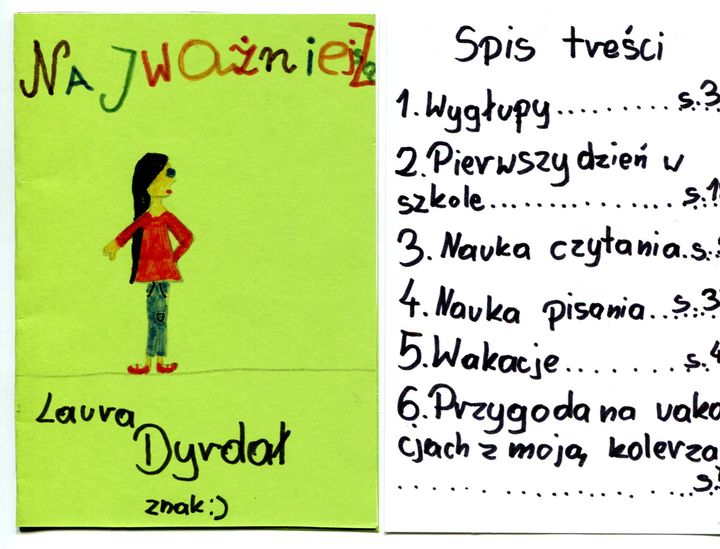 Najważniejsze
Laura
Dyrdał
znak:)
Spis treści
1. Wygłupy......... s.3
2. Pierwszy dzień w
szkole............... s.1
3. Nauka czytania.s.
4. Nauka pisania..s.3
5. Wakacje......... s.4
6. Przygoda na uaka
cjach z moją kolerza
................s.